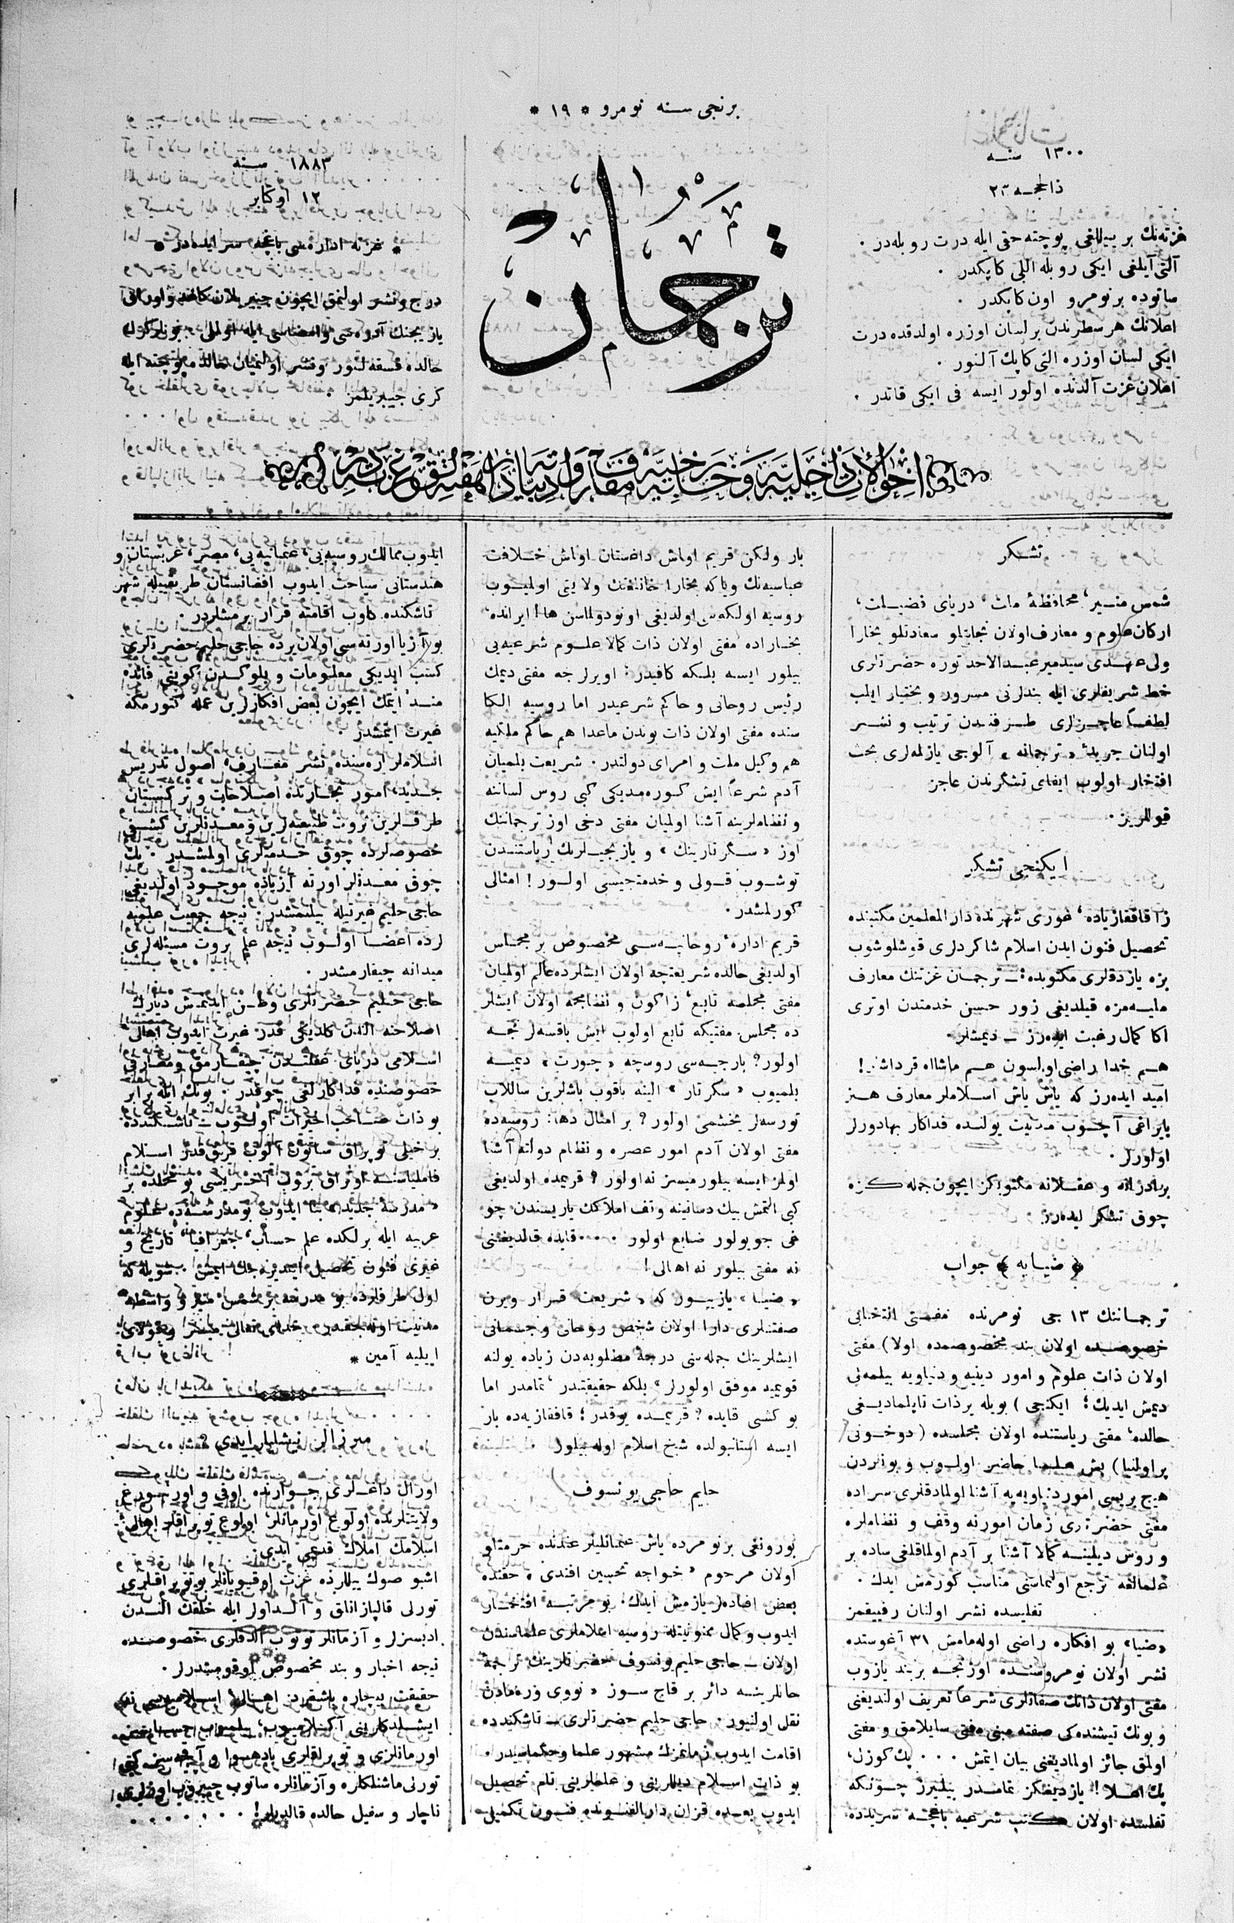 برنجی سنه نومرو * ١٩ *
١٣٠٠ سنه
ذالحجه ٢٣
غزته‌نك بر ییللغی پوچته حقی ایله درت روبله‌در .
آلتی آیلغی ایکی روبله اللی کاپکدر .
صاتوده بر نومرو اون کاپکدر .
اعلانك هر سطرندن بر لسان اوزره اولدقده درت
ایکی لسان اوزره التی کاپك آلنور .
اعلان غزت آلدنده اولور ایسه فی ایکی قاتدر .
ترجمان
١٨٨٣ سنه
١٢ اوکتابر
* غزته اداره‌سی باغچه سرایده‌در *
درج و نشر اولنمق ایچون جیبریلان کاغد و اوراقی
یازیجینك آدرسی و امضاسی ایله اولملی .
حالده قسقه‌لنور و نشر اولنمیان پوچته ایله
کری جیبریلمز .
احوالات داخلیه و خارجیه معارف و ادبیاتدن هفته‌لق غزته‌در
تشکر
شمس منیر، محافظهٔ مات، دریای فضیلت،
ارکان علوم و معارف اولان نجابتلو سعادتلو بخارا
ولی عهدی سیدمیر عبدالاحد توره حضرتلری
خط شریفلری ایله بندلرنی مسرور و بختیار ایلب
لطفاً عاجزلری طرفندن ترتیب و نشر
اولنان جریدهٔ «ترجمانه» آلوجی یازلمه‌لری بحث
افتخار اولوب ایفای تشکرندن عاجز
قوللریز .
ایکنجی تشکر
زاقافقازیاده، غوری شهرنده دارالمعلمین مکتبنده
تحصیل فنون ایدن اسلام شاکردلری قوشلوشوب
بزه یازدقلری مکتوبده: ــ ترجمان غزتنك معارف
مایه‌مزه قیلدیغی زور حسن خدمتدن اوتری
اکا کمال رغبت ایده‌رز ــ دیمشلر.
هم خدا راضی اولسون هم ماشاالله قرداشلر!
امید ایده‌رز که یاش یاش اسلاملر معارف هنر
یایراغی آچوب مدنیت یولنده فداکار بهادورلر
اولورلر .
برادرانه و عقلانه مکتوبکز ایچون جمله‌کزه
چوق تشکر ایده‌رز .
﴿ ضیایه ﴾ جواب
ترجماننك ١٣ جی نومرنده مفتی انتخابی
خصوصنده اولان بند مخصوصمده اولا) مفتی
اولان ذات علوم و امور دینیه و دنیاویه بیلمه‌لی
دیمش ایدیك ؛ ایکنجی ) بویله بر ذات تاپلمادیغی
حالده، مفتی ریاستنده اولان مجلسده (دوخونی
پراولنیا) بش علما حاضر اولوب و بونردن
هیچ بریسی امورد: یاویه‌یه آشنا اولمادقلری سراده
مفتی حضرتلری زمان امورنه وقف و نظاملره
و روش دیلینه کمالا آشنا بر آدم اولماقلغی ساده بر
علمالقغه ترجع اولنماسنی مناسب کورمش ایدك .
تفلیسده نشر اولنان رفیقمز
«ضیا» بو افکاره راضی اوله‌مامش ٣١ آغوستده
نشر اولان نومروسنده اوزنجه بر بند یازوب
مفتی اولان ذاتك صفاتلری شرعاً تعریف اولندیغی
و بونك تیشنده‌کی صفته مبنی مفتی سایلامق و مفتی
اولمق جائز اولمادیغنی بیان ایتمش . . . پك کوزل،
پك اهلا! یازدیغکز تمامدر بیلیرز چونکه
تفلسده اولان کتب شرعیه باغچه سریده‌ده
بار ولکن قریم اوباش داغستان اوباش خلافت
عباسیه‌نك ویاکه بخارا خانلغنك ولایتی اولمیوب
روسیه اولکه‌سی اولدیغی اونودولماسن ها! ایرانده،
بخاراده مفتی اولان ذات کمالا علوم شرعیه‌یی
بیلور ایسه بلسکه کافیدر: اویرلرجه مفتی دیمك
رئیس روحانی و حاکم شرعیدر اما روسیه الکا
سنده مفتی اولان ذات بوندن ماعدا هم حاکم ملکیه
هم وکیل ملت و امرای دولتدر . شریعت بلمیان
آدم شرعاً ایش کوره‌مدیکی کبی روس لساننه
و نظاملرینه آشنا اولمیان مفتی دخی اوز ترجماننك
اوز «سکرتارینك» و یازیجیلرنك ریاستندن
توشوب قولی و خدمتجیسی اولور! امثالی
کورلمشدر .
قریم اداره‌ٔ روحانیه‌سی مخصوص بر مجلس
اولدیغی حالده شریعتچه اولان ایشلرده عالم اولمیان
مفتی مجلسه تابع، زاکون و نظامجه اولان ایشلر
ده مجلس مفتیکه تابع اولوب ایش باقسه‌لر نجه
اولور؟ پارچه‌سی روسچه «چورت» دیمیه
بلمیوب «سکرتار» البته باقوب باشلرین ساللاب
تورسه‌لر یخشمی اولور؟ بر امثال دها: روسیه‌ده
مفتی اولان آدم امور عصره و نظام دولته آشنا
اولمز ایسه بیلورمیسز نه اولور؟ قریمده اولدیغی
کبی التمش بیك دساتینه وقف املاکك یاریسندن چو
غی جویولور ضایع اولور . . . . فایده قالدیغنی
نه مفتی بیلور نه اهالی!
«ضیا» یازییور که «شریعت قرار ویرن
صفتلری دارا اولان شخص روحانی و جسمانی
ایشلرینك جمله‌سنی درجهٔ مطلوبه‌دن زیاده یولنه
قویمیه موفق اولورلر» بلکه حقیقتدر، تمامدر اما
بو کشی قایده؟ قریمده یوقدر؛ قافقازیه‌ده بار
ایسه استانبولده شیخ اسلام اوله بیلول
حلیم حاجی یونسوف
بورونغی بر نومرده یاش عثمانلیلر عندنده حرمتلو
اولان مرحوم «خواجه تحسین افندی» حقنده
بعض افاده‌لر یازمش ایدك . بو مرتبه افتخار
ایدوب وکمال ممنونیتله روسیه اعلاملری علماسندن
اولان ــ حاجی حلیم یونسوف حضرتلرینك ترجمهٔ
حالرینه دائر بر قاچ سوز «نووی ورمه»دن
نقل اولنیور . حاجی حلیم حضرتلری ــ تاشکندده
اقامت ایدوب زمانمزنك مشهور علما و حکماسیدر .
بو ذات اسلام دیللرینی و علملرینی تلم تحصیل
ایدوب بعده قزان دارالفنونده فنون تکمیلی
ایدوب ممالك روسیه‌یی، عثمانیه‌یی، مصر، عربستان و
هندستانی سیاحت ایدوب افغانستان طریقیله شهر
تاشکنده کلوب اقامته قرار برمشلردر
بو آزیا اورته‌سی اولان یرده حاجی حلیم حضرتلری
کسب ایدیکی معلومات و بلوکدن کویتی فائده
مند ایتمك ایچون بعض افکارلرین عمله کتورمکه
غیرت اتمشدر .
اسلاملر اره‌سنده نشر معارف، اصول تدریس
جدید، امور تجارتده اصلاحات و ترکستان
طرفلرین ثروت طبیعیه‌لرین و معدنلرین کشف
خصوصلرده چوق خدمتلری اولمشدر . پك
چوق معدنلر اورته آزیاده موجود اولدیغی
حاجی حلیم غیرتیله بیلنمشدر . نیجه جمعیت علمیه
لرده اعضا اولوب نیجه علم ثروت مسئله‌لری
میدانه چیقارمشدر .
حاجی حلیم حضرتلری وطن ایدنمش دیارك
اصلاحنه الندن کلدیکی قدر غیرت ایدوب اهالی
اسلامی دریای غفلتدن چیقارمق و معارف
خصوصنده فداکارلغی چوقدر . بونك ایله برابر
بو ذات صاحب خیرات اولوب ــ تاشکندده
بر خیلی توپراق ساتون آلوب فریق قدر اسلام
فامیلیاسنه اوتراق یروب آخریسی بو محلده بر
«مدرسهٔ جدیده» بنا ایدوب بو مدرسه‌ده علوم
عربیه ایله برلکده علم حساب، جغرافیا، تاریخ و
غیری فنون تحصیل ایتدیره‌جك ایمش . شویله که
اول طرفلرده بو مدرسه بر شمس منیر و واسطهٔ
مدنیت اوله‌جقدر . خدای تعالی میسر و قولای
ایلیه آمین *
میرزالر نیشلیار ایدی؟
اورال داغلری جوارنده اوفی و اورنبورغ
ولایتلرنده اولوغ اورمانلر، اولوغ توپراقلر اهالی؛
اسلامك املاك قدیمی ایدی .
اشبو صوك ییللرده غزت اوقیوانلر بو توپراقلری
تورلی قالپازاناق و آلداولر ایله خلقك الندن
ادبسزلر و آزمانلر توتوب آلدقلری خصوصنده
نیجه اخبار و بند مخصوص اوقومشدرلر .
حقیقت بیچاره باشقرد . اهالی اسلامیه‌سی نه
ایشلدکلرینی آکلامیوب، بیلمیوب
اورمانلرنی و توپراقلری
تورلی ماشنلکاره و آزمانلره ساتوب جیبروب اوزلری
ناچار و سفیل حالده قالدیلر! . . . . . .